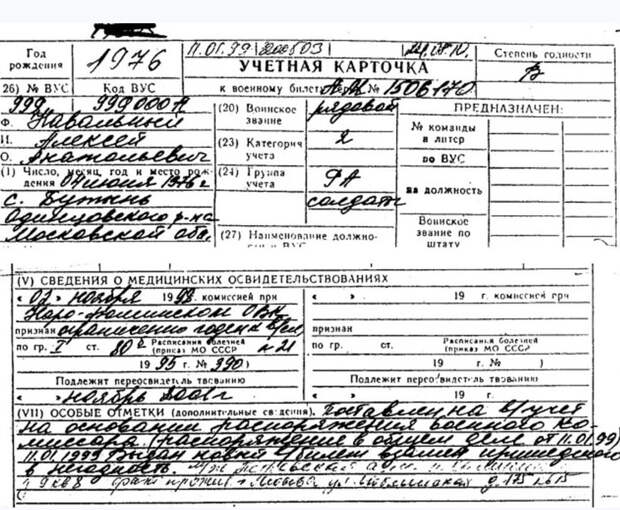 11.01.99 200503
Год рождения 1976
УЧЕТНАЯ КАРТОЧКА
Степень годности В
26) № ВУС Код ВУС к военному билету № 1506170
999 999000А
(20) Воинское звание рядовой
ПРЕДНАЗНАЧЕН:
Ф. Навальный
№ команды в литер
И. Алексей
(23) Категория учета 2
по ВУС
О. Анатольевич
(1) Число, месяц, год и место рождения 04 июня 1976 г
(24) Группа учета РА
на должность
с. Бутынь
солдат
Одинцовского р-на
Московской обл.
(27) Наименование должно-
Воинское звание по штату
(V) СВЕДЕНИЯ О МЕДИЦИНСКИХ ОСВИДЕТЕЛЬСТВОВАНИЯХ
« 02 » ноября 1998. комиссией при « » 19 г. комиссией при
Наро-Фоминском ОВК
признан ограниченно годен признан
по гр. I ст. Расписания болезней (приказ МО СССР по гр. ст. Расписания болезней (приказ МО СССР
1995 г. № 390) 19 г. № )
Подлежит переосвидетельствованию Подлежит переосвидетельствованию
« » ноябрь 2001 г « » 19 г.
(VII) ОСОБЫЕ ОТМЕТКИ (дополнительные сведения). Поставлен на в/учет
на основании распоряжения военного ко-
миссара (распоряжение в общем деле от 11.01.99)
11.01.1999 Выдан новый в/билет взамен пришедшего
в негодность.
факт прожив г Москва ул. Люблинская